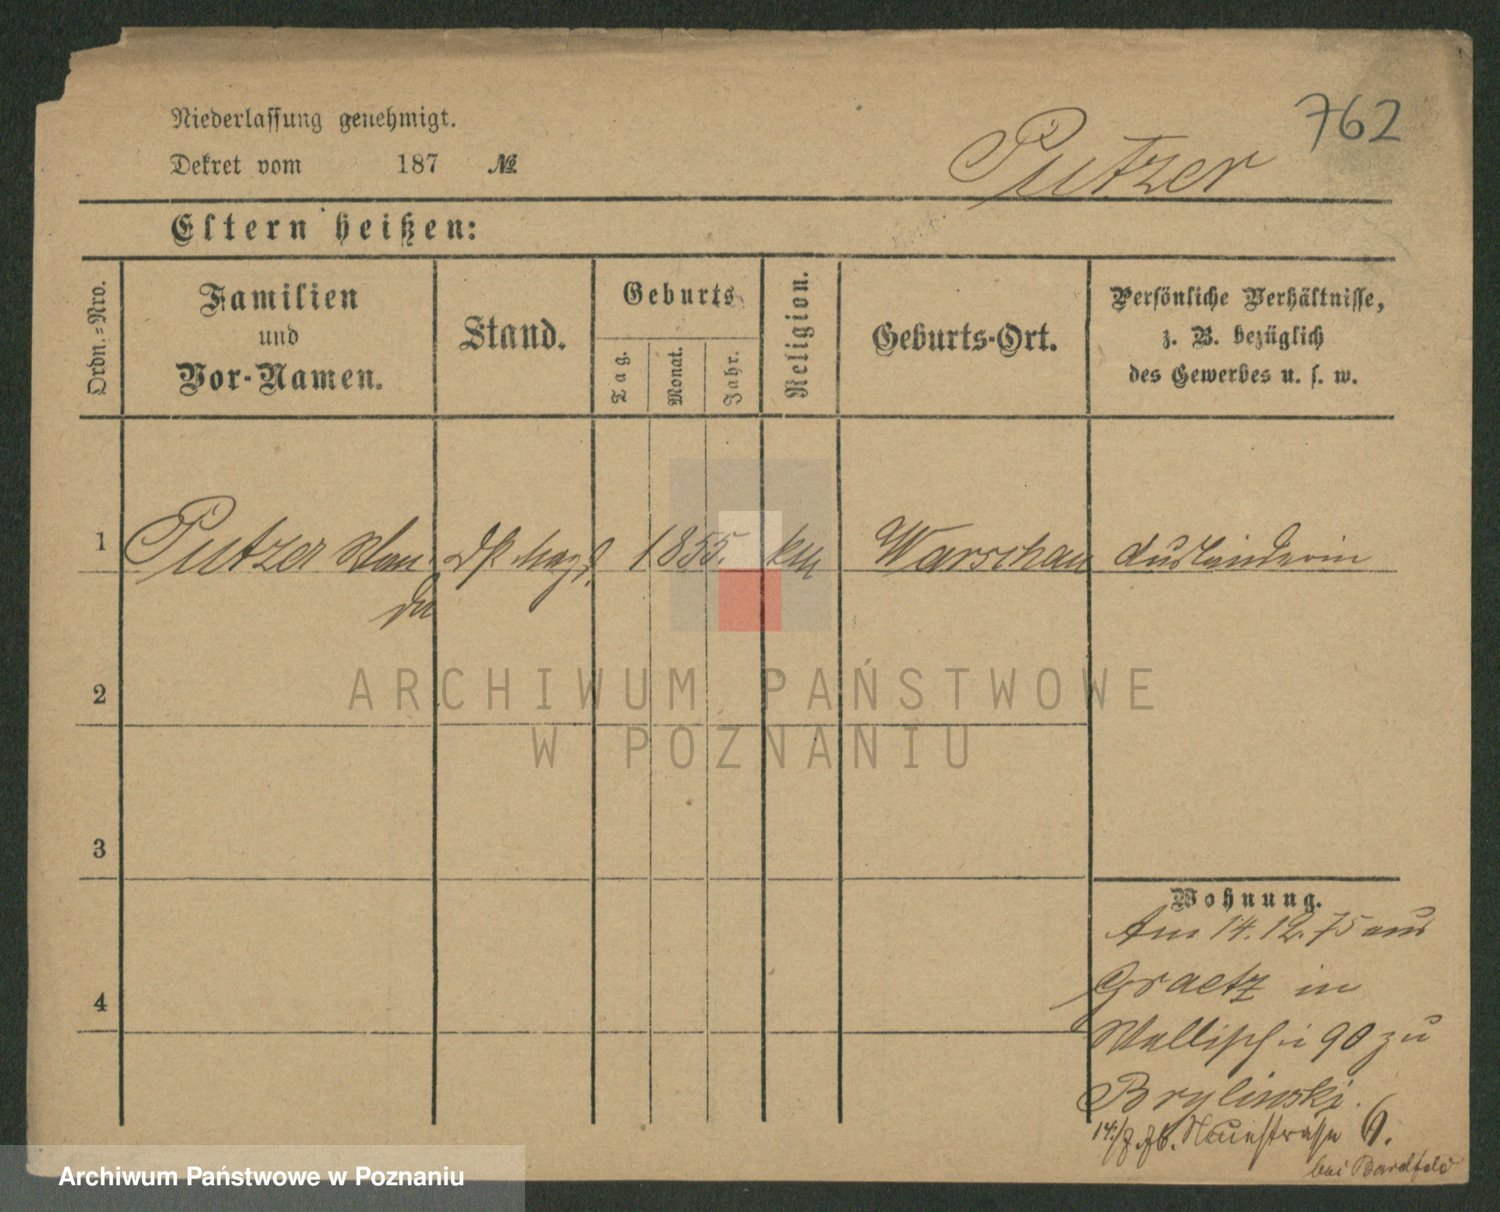 762
Niederlassung genehmigt.
Dekret vom 187 №
Putzer
Eltern heißen:
Ordn.=Nro.
Familien
und
Vor-Namen.
Stand.
Geburts
Tag.
Monat.
Jahr.
Religion.
Geburts-Ort.
Persönliche Verhältnisse,
z. B. bezüglich
des Gewerbes u. s. w.
1 Putzer Wan- 1855. kth Warschau Ausländerin
da
2
ARCHIWUM PAŃSTWOWE
W POZNANIU
3
Wohnung.
Am 14.12.75 aus
Graetz in
4
Wallischei 90 zu
Brylinski.
Neuestrasse 6.
bei Bardfeld
Archiwum Państwowe w Poznaniu